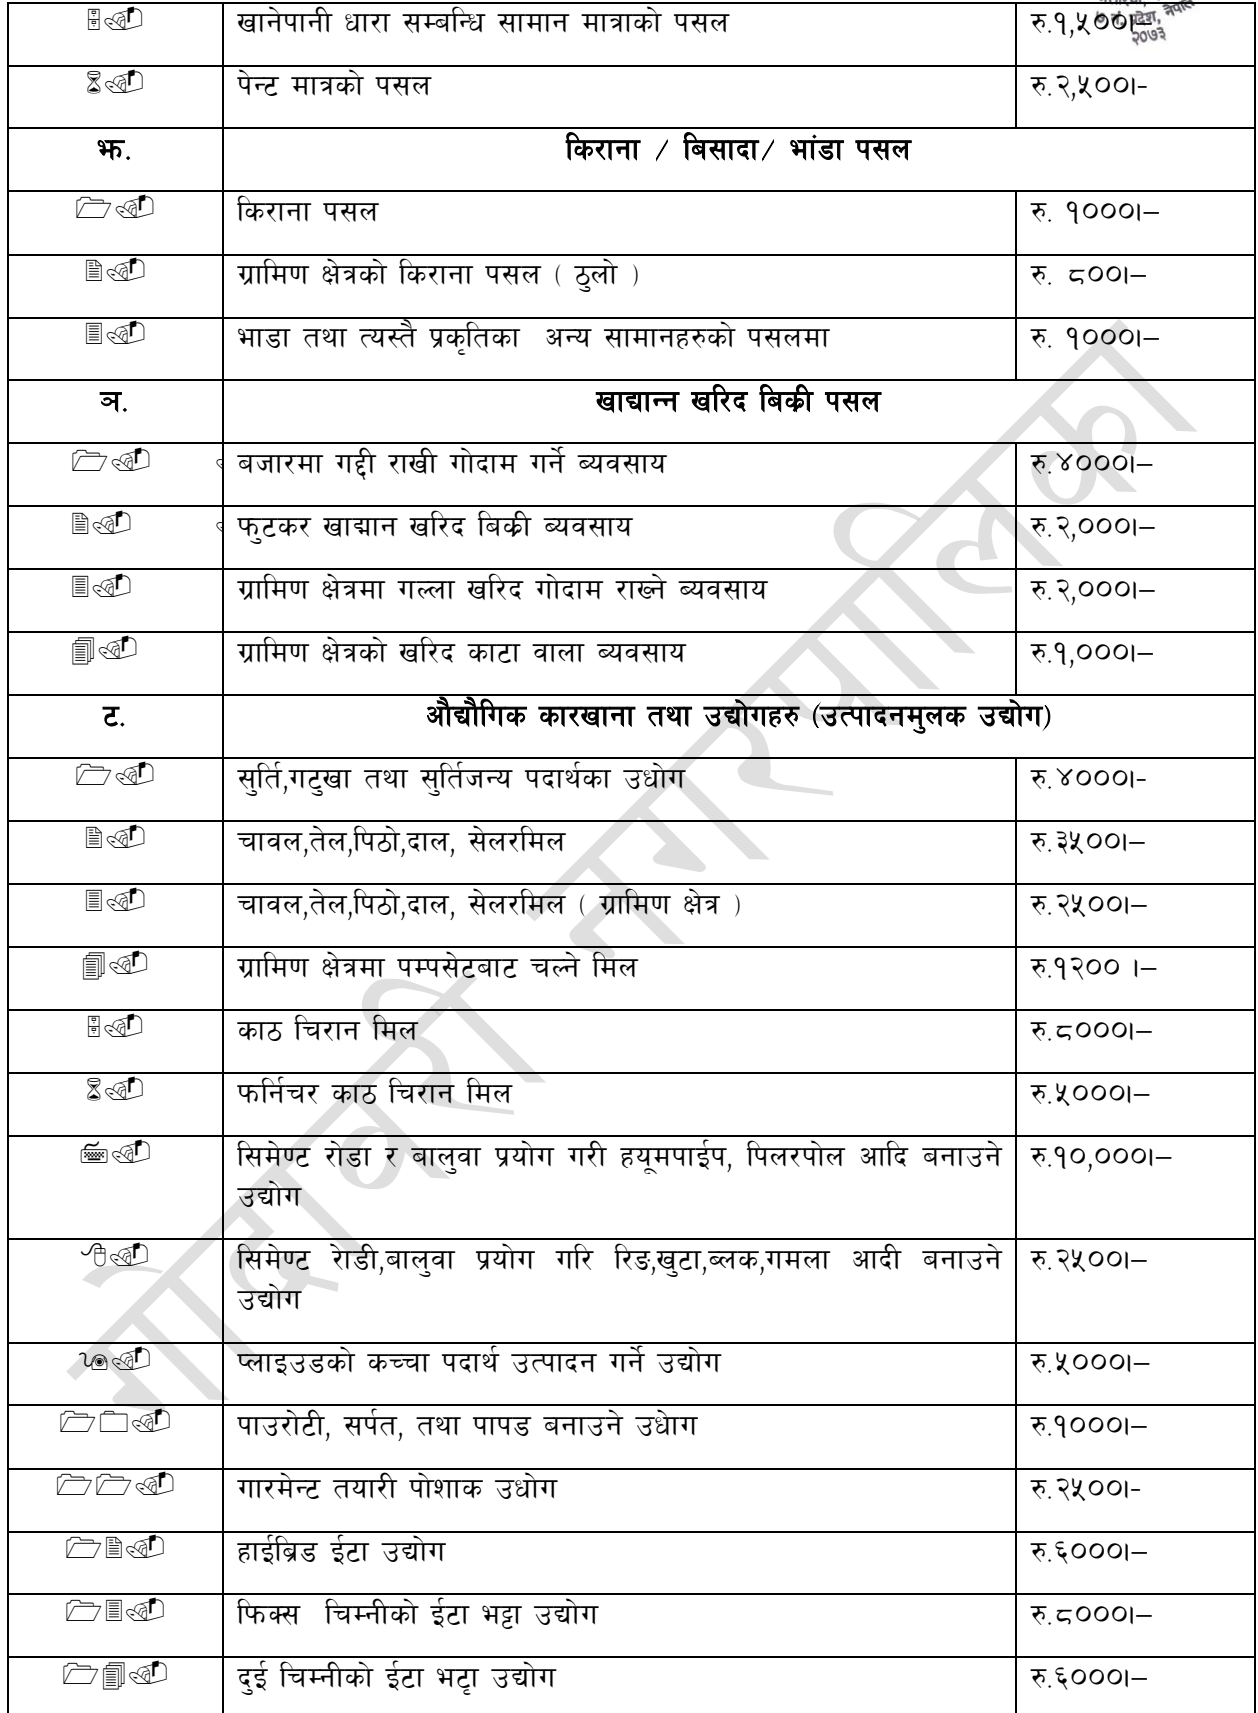 खानेपानी धारा सम्बन्धि सामान मात्राको पसल रु.१,५००।–
प्रदेश, नेपाल
२०७३
पेन्ट मात्रको पसल रु.२,५००।-
झ. किराना / बिसादा/ भांडा पसल
किराना पसल रु. १०००।–
ग्रामिण क्षेत्रको किराना पसल ( ठुलो ) रु. ८००।–
भाडा तथा त्यस्तै प्रकृतिका अन्य सामानहरुको पसलमा रु. १०००।–
ञ. खाद्यान्न खरिद बिक्री पसल
बजारमा गद्दी राखी गोदाम गर्ने ब्यवसाय रु.४०००।–
फुटकर खाद्मान खरिद बिक्री ब्यवसाय रु.२,०००।–
ग्रामिण क्षेत्रमा गल्ला खरिद गोदाम राख्ने ब्यवसाय रु.२,०००।–
ग्रामिण क्षेत्रको खरिद काटा वाला ब्यवसाय रु.१,०००।–
ट. औद्यौगिक कारखाना तथा उद्योगहरु (उत्पादनमुलक उद्योग)
सुर्ति,गटुखा तथा सुर्तिजन्य पदार्थका उधोग रु.४०००।-
चावल,तेल,पिठो,दाल, सेलरमिल रु.३५००।–
चावल,तेल,पिठो,दाल, सेलरमिल ( ग्रामिण क्षेत्र ) रु.२५००।–
ग्रामिण क्षेत्रमा पम्पसेटबाट चल्ने मिल रु.१२०० ।–
काठ चिरान मिल रु.८०००।–
फर्निचर काठ चिरान मिल रु.५०००।–
सिमेण्ट रोडा र बालुवा प्रयोग गरी हयूमपाईप, पिलरपोल आदि बनाउने रु.१०,०००।–
उद्योग
सिमेण्ट रोडी,बालुवा प्रयोग गरि रिङ,खुटा,ब्लक,गमला आदी बनाउने रु.२५००।–
उद्योग
प्लाइउडको कच्चा पदार्थ उत्पादन गर्ने उद्योग रु.५०००।–
पाउरोटी, सर्पत, तथा पापड बनाउने उधोग रु.१०००।–
गारमेन्ट तयारी पोशाक उधोग रु.२५००।-
हाईब्रिड ईटा उद्योग रु.६०००।–
फिक्स चिम्नीको ईटा भट्टा उद्योग रु.८०००।–
दुई चिम्नीको ईटा भट्टा उद्योग रु.६०००।–
गोदावरी नगरपालिका